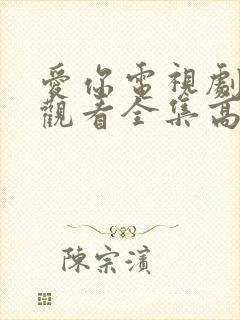 愛你電視劇
觀看全集高
陳宗濱